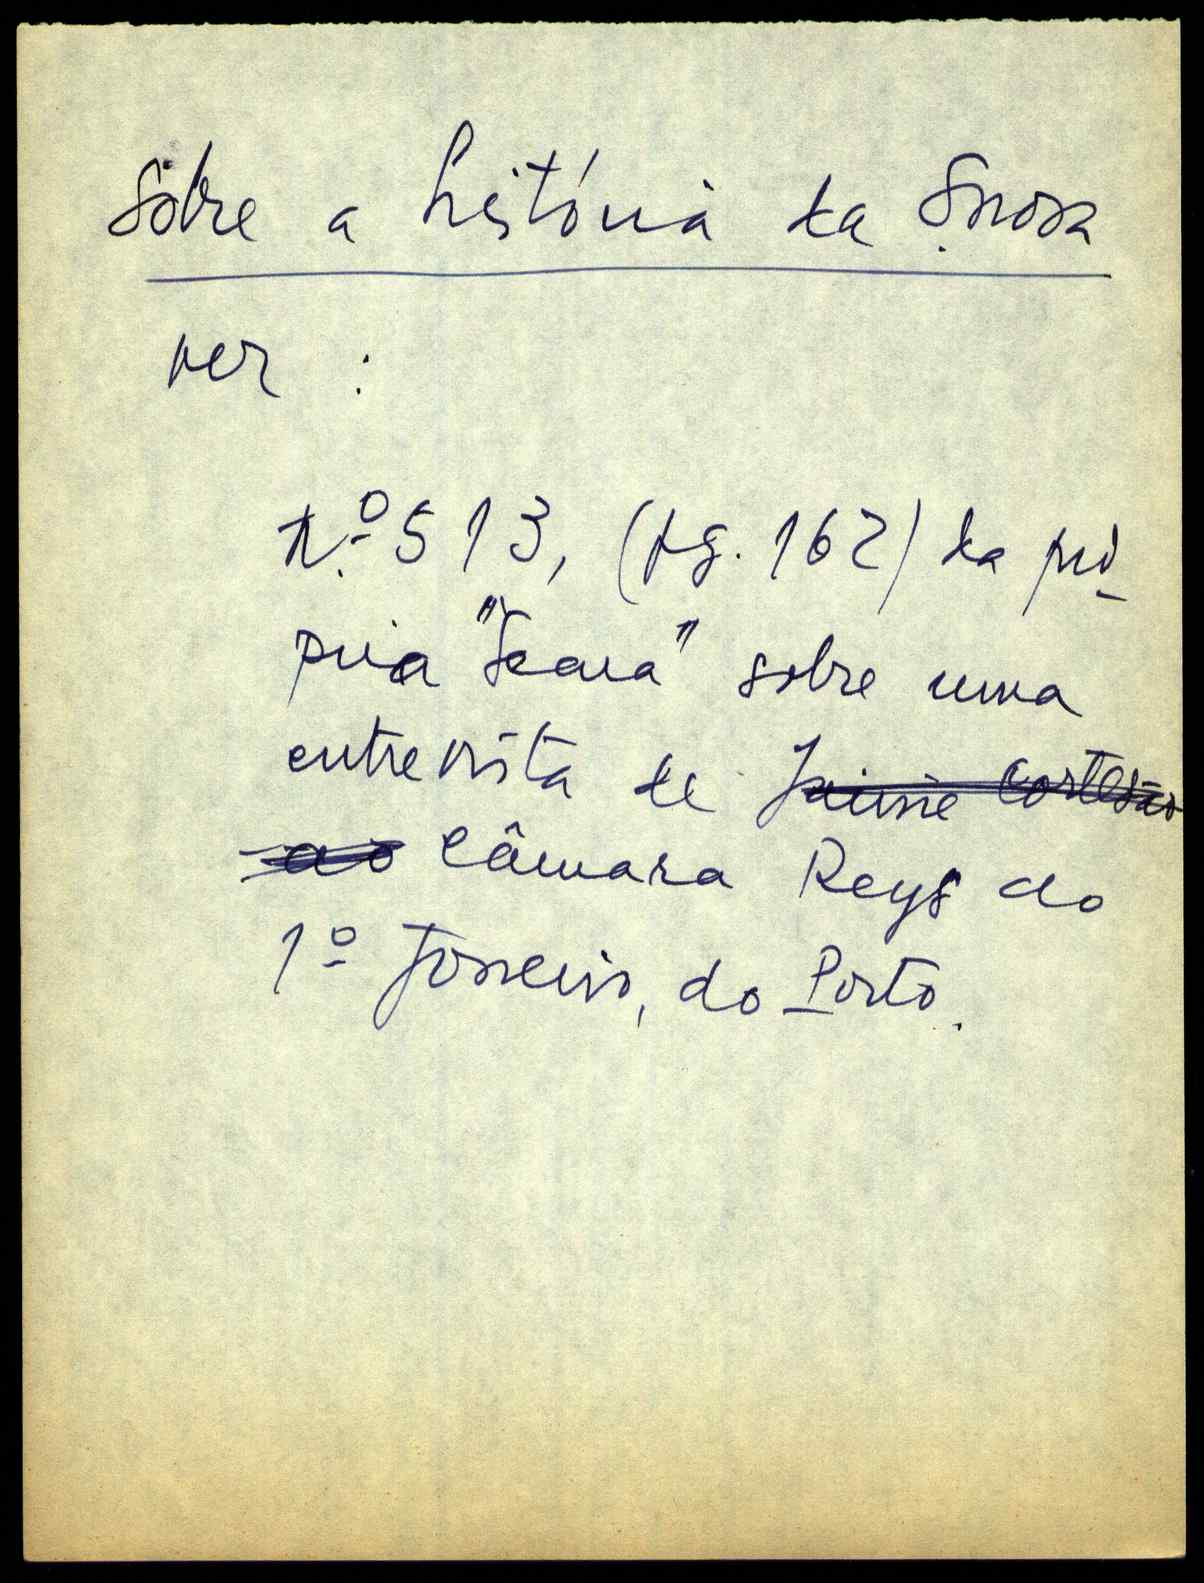 Sôbre a história da S.nova
ver :
n.º 513, (pg. 162) da pró-
pria "Seara" sobre uma
entrevista de Jaime Cortesão
ao Câmara Reys do
1º Janeiro, do Porto.